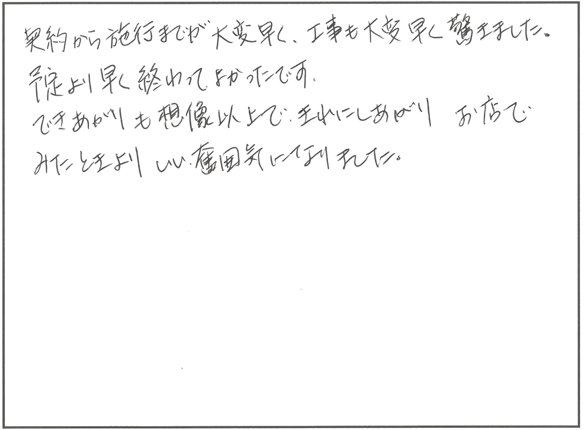 契約から施行までが大変早く、工事も大変早く驚きました。
予定より早く終わってよかったです。
できあがりも想像以上で、きれにしあがり お店で
みたときより いい雰囲気になりました。